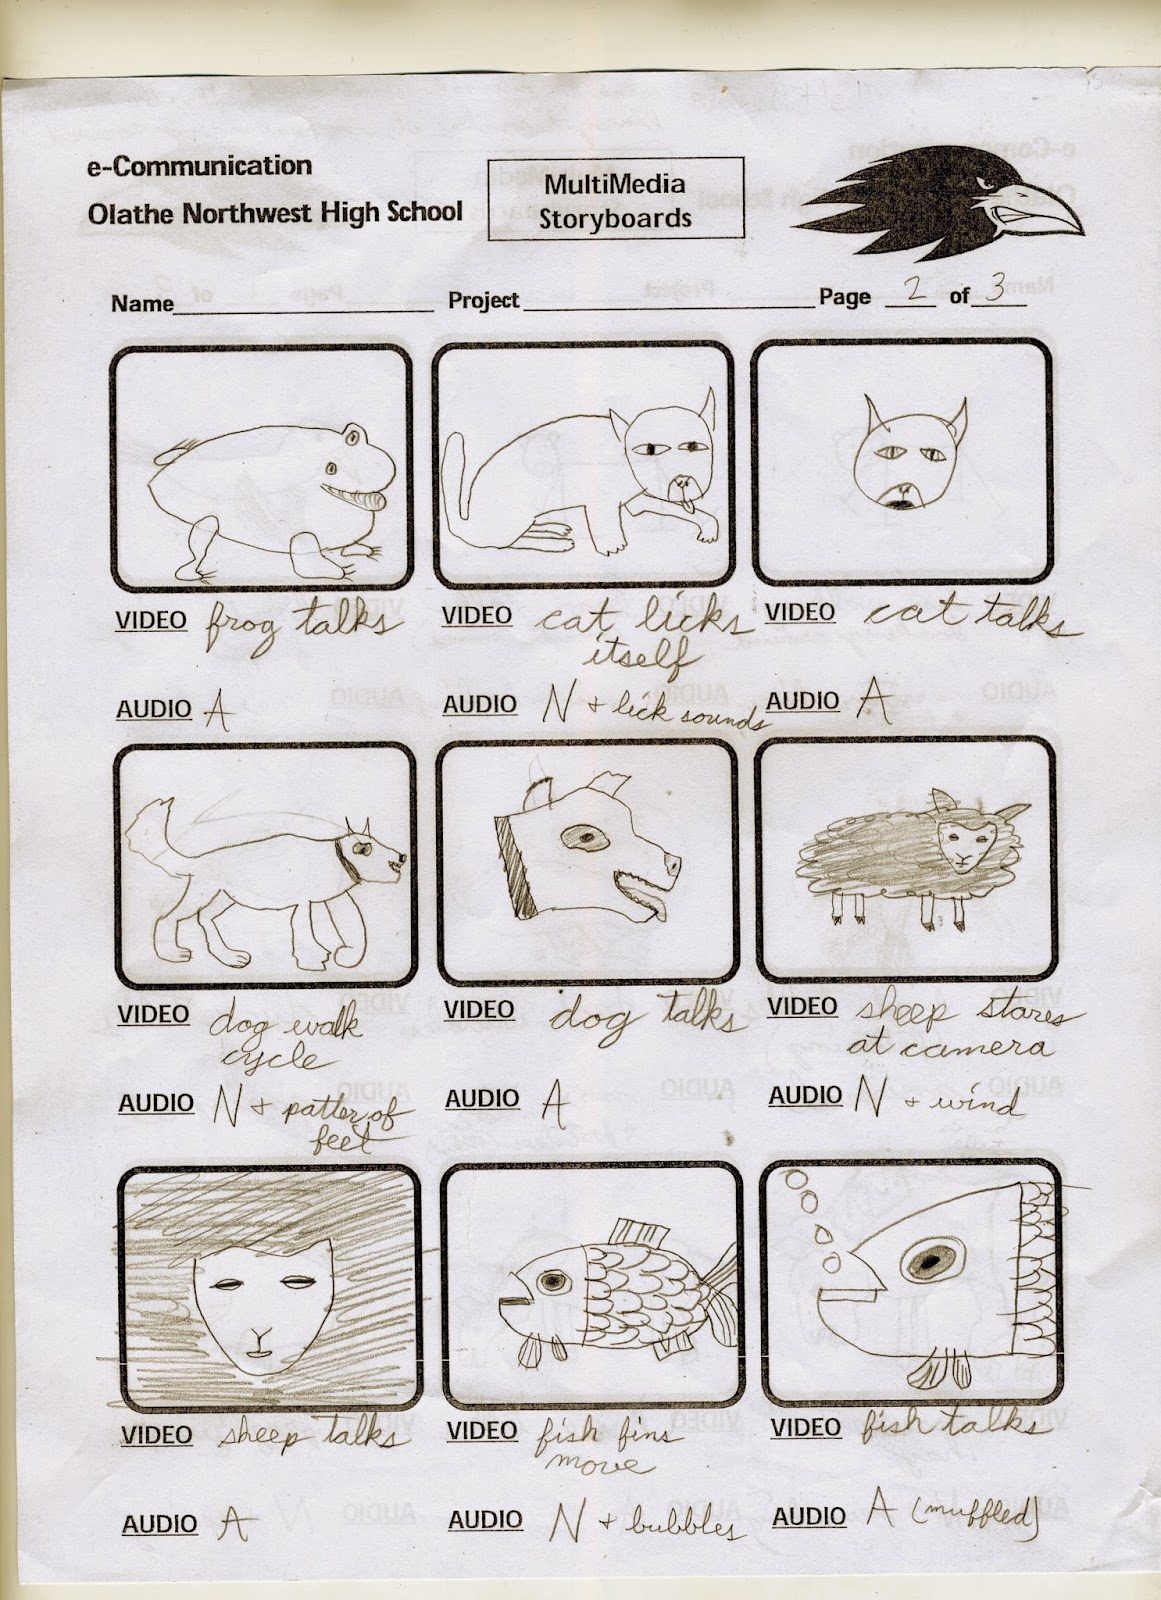 e-Communication
Olathe Northwest High School
MultiMedia
Storyboards
Name Project Page 2 of 3
VIDEO frog talks
AUDIO A
VIDEO cat licks
itself
AUDIO N + lick sounds
VIDEO cat talks
AUDIO A
VIDEO dog walk
cycle
AUDIO N + patter of
feet
VIDEO dog talks
AUDIO A
VIDEO sheep stares
at camera
AUDIO N + wind
VIDEO sheep talks
AUDIO A
VIDEO fish fins
move
AUDIO N + bubbles
VIDEO fish talks
AUDIO A (muffled)